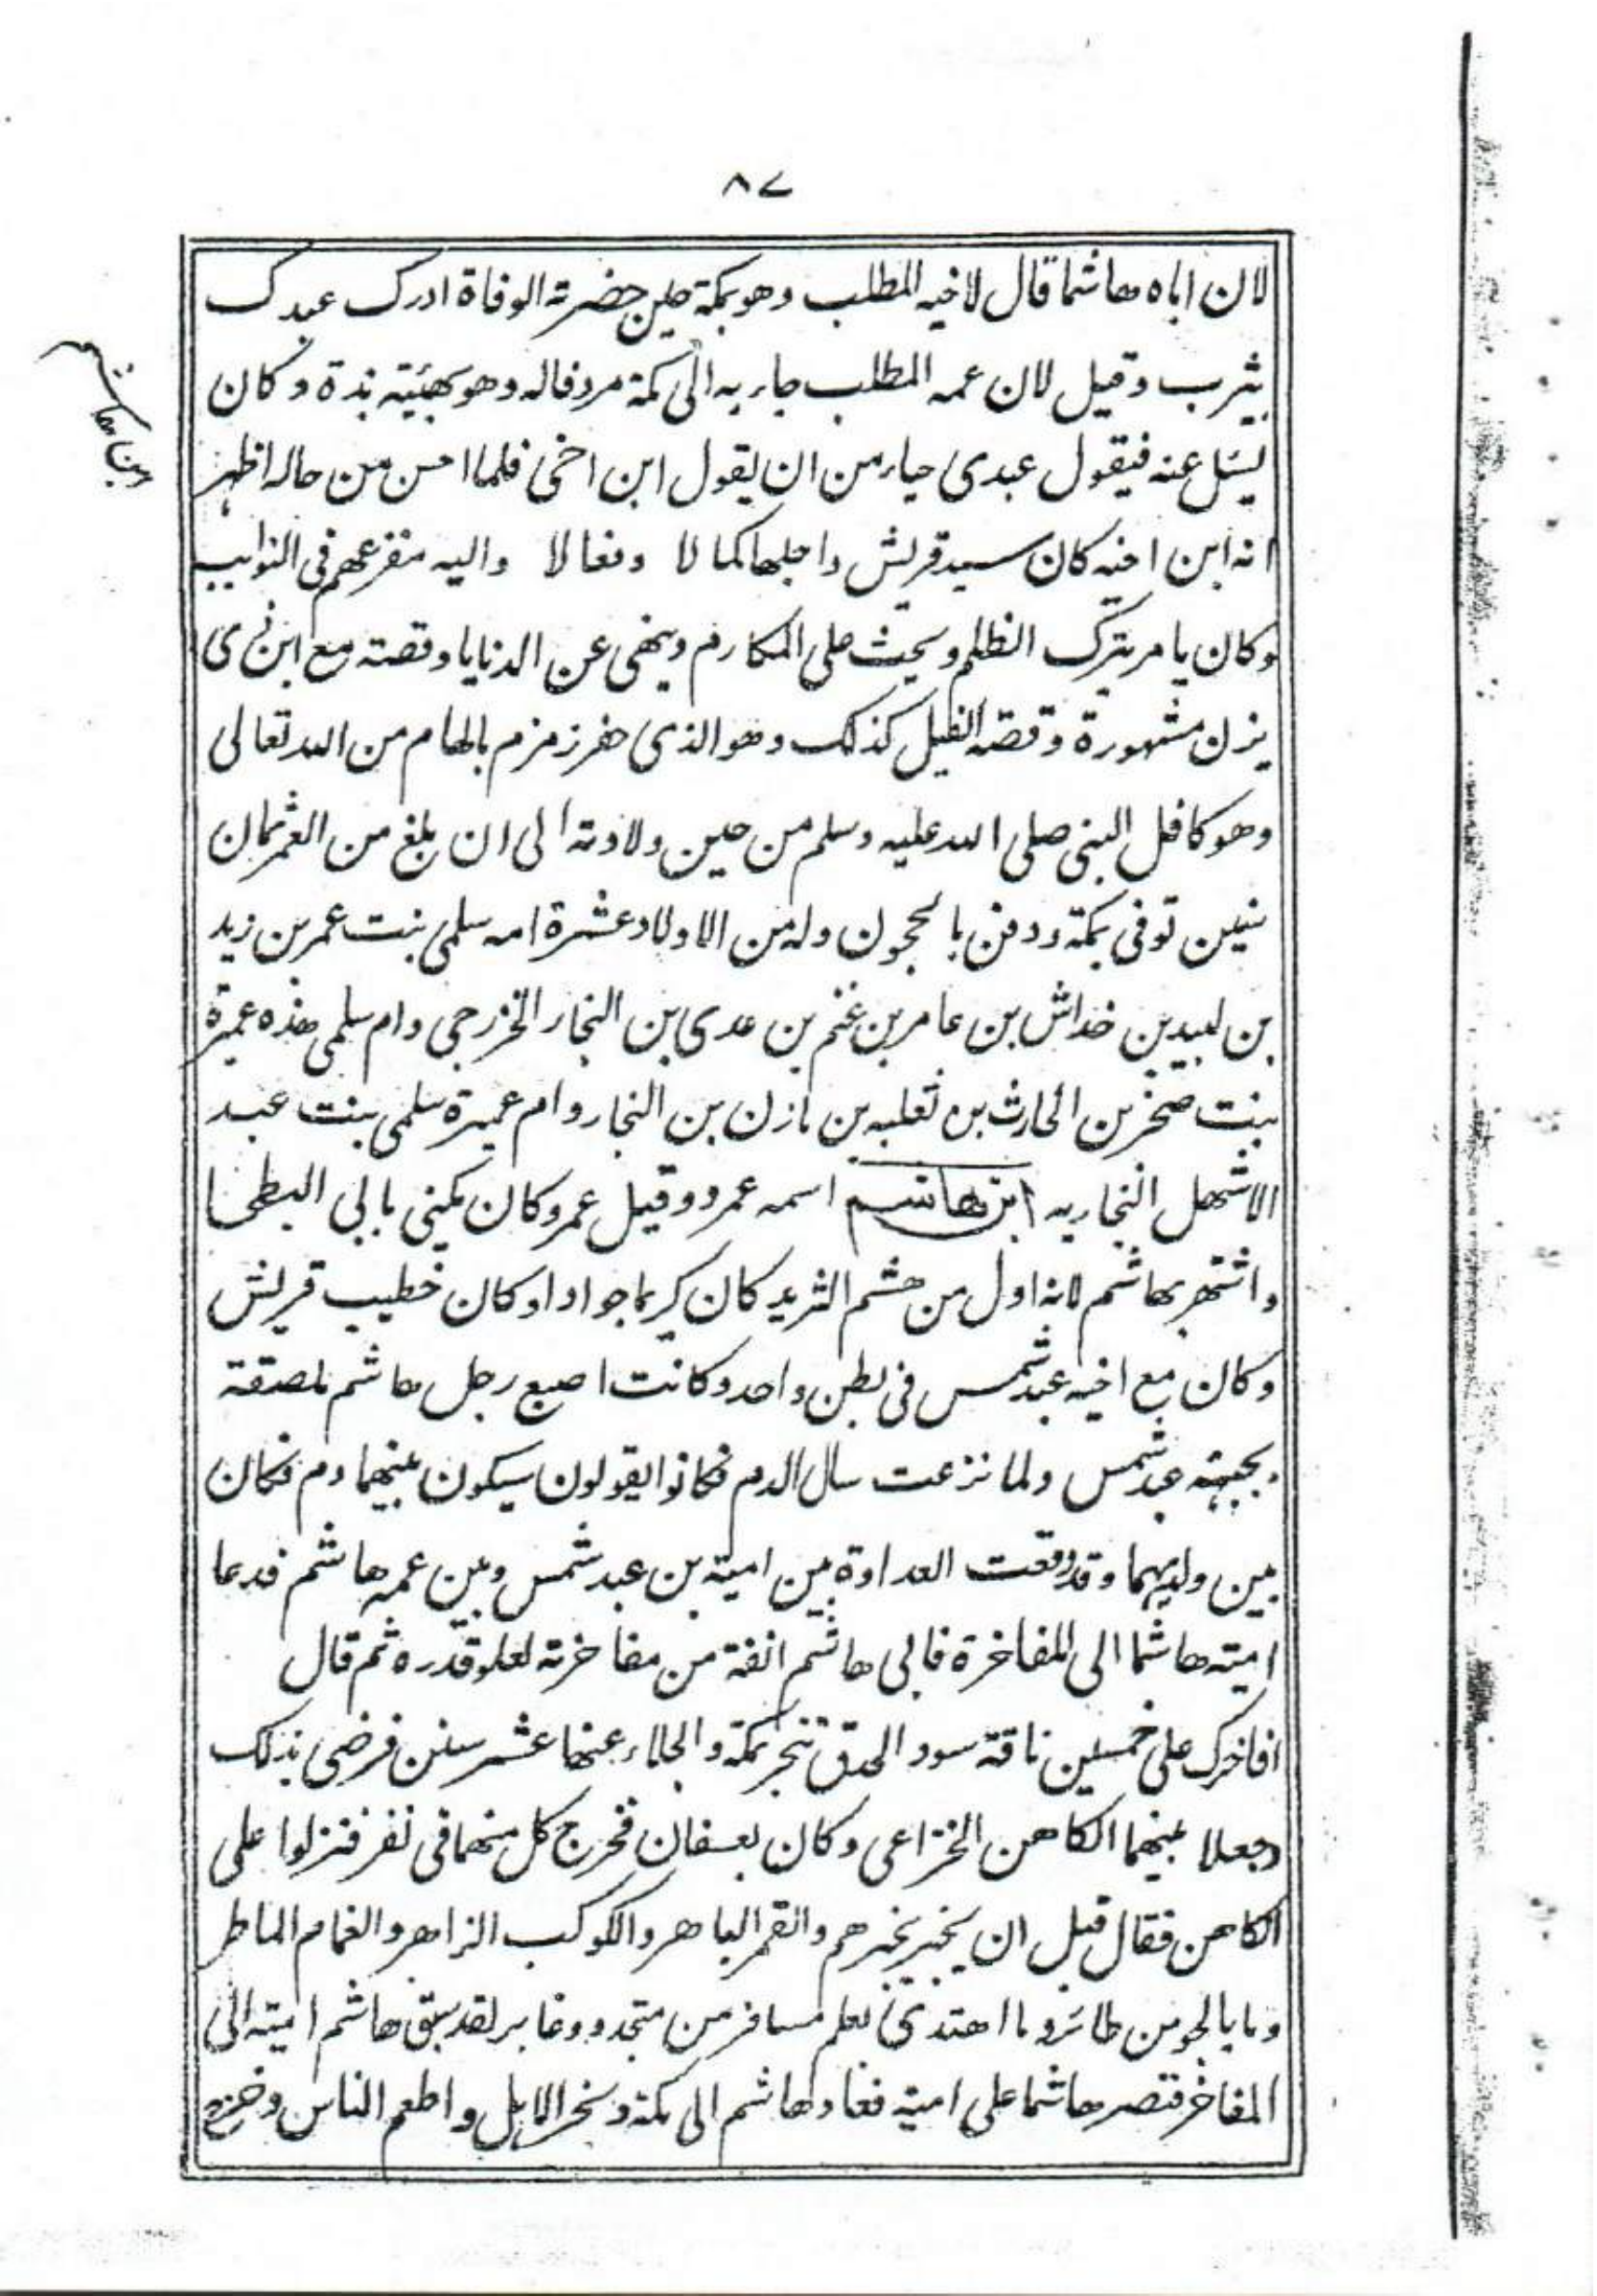 ٨٧
لان اباه هاشما قال لاخيه المطلب وهو بمكة حين حضرته الوفاة ادرك عبدك
بيثرب وقيل لان عمه المطلب جاء به الى مكة مردفاله وهو بهيئة بذة وكان
يسئل عنه فيقول عبدى حياء من ان يقول ابن اخى فلما احسن من حاله اظهر
ابن هاشم
انه ابن اخيه كان سيد قريش واجلها كمالا وفعالا واليه مفزعهم فى النوايب
وكان يامر بترك الظلم ويحث على المكارم وينهى عن الدنايا وقصته مع ابن ذى
يزن مشهورة وقصة الفيل كذلك وهو الذى حفر زمزم بالهام من الله تعالى
وهو كافل النبى صلى الله عليه وسلم من حين ولادته الى ان بلغ من العمر ثمان
سنين توفى بمكة ودفن بالحجون وله من الاولاد عشرة امه سلمى بنت عمر بن زيد
بن لبيد بن خداش بن عامر بن غنم بن عدى بن النجار الخزرجى وام سلمى هذه عميرة
بنت صخر بن الحارث بن ثعلبه بن مازن بن النجار وام عميرة سلمى بنت عبد
الاشهل النجاريه ابن هاشم اسمه عمرو وقيل عمر وكان يكنى بابى البطحا
واشتهر بهاشم لانه اول من هشم الثريد كان كريما جوادا وكان خطيب قريش
وكان مع اخيه عبد شمس فى بطن واحد وكانت اصبع رجل هاشم ملصقة
بجبهة عبد شمس ولما نزعت سال الدم فكانوا يقولون سيكون بينهما دم فكان
بين ولديهما وقد وقعت العداوة بين امية بن عبد شمس وبين عمه هاشم فدعا
امية هاشما الى المفاخرة فابى هاشم انفة من مفاخرته لعلو قدره ثم قال
افاخرك على خمسين ناقة سود الحدق تنحر بمكة والجلاء عنها عشر سنين فرضى بذلك
وجعلا بينهما الكاهن الخزاعى وكان بعسفان فخرج كل منهما فى نفر فنزلوا على
الكاهن فقال قبل ان يخبر بخبرهم والقمر الباهر والكوكب الزاهر والغمام الماطر
وما بالجو من طائر وما اهتدى بعلم مسافر من منجد وغاير لقد سبق هاشم امية الى
المفاخر فنصر هاشما على امية فعاد هاشم الى مكة ونحر الابل واطعم الناس وخرج